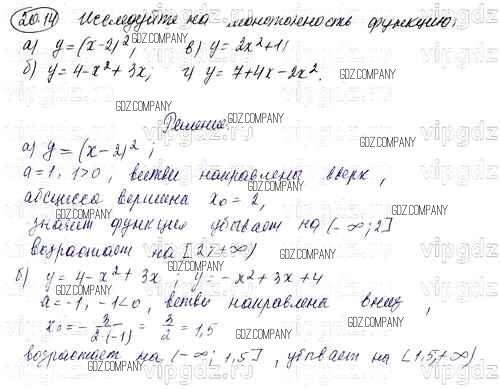 20.14 Исследуйте на монотонность функцию:
а) y = (x-2)², в) y = 2x²+1;
б) y = 4-x²+3x; г) y = 7+4x-2x².
Решение.
а) y = (x-2)²;
a=1, 1>0, ветви направлены вверх,
абсцисса вершина x₀ = 2,
значит функция убывает на (-∞; 2]
возрастает на [2; +∞)
б) y = 4-x²+3x; y = -x²+3x+4
a=-1, -1<0, ветви направлена вниз,
x₀ = -3/2(-1) = 3/2 = 1,5
возрастает на (-∞; 1,5], убывает на [1,5; +∞)
GDZ.COMPANY
vipgdz.ru